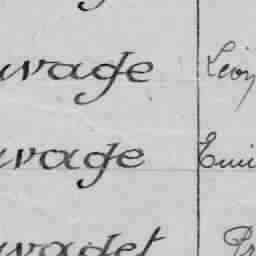 uvage Léon
uvage Emi
uvadet Pr